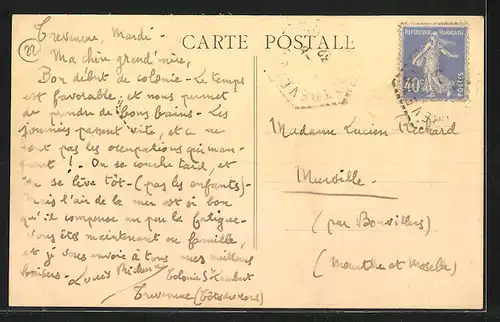 Treveneuc, Mardi -
Ma chère grand'mère,
Bon début de colonie - Le temps
est favorable, et nous permet
de prendre de "bons bains. - Les
journées passent vite, et ce ne
sont pas les occupations qui man-
quent ! - On se couche tard, et
on se lève tôt - (pas les enfants) -
Mais l'air de la mer est si bon
qu'il compense un peu la fatigue -
Vous êtes maintenant en famille,
et je vous envoie à tous mes meilleurs
baisers - Louis Richard
Colonie St
Treveneuc (Côtes du Nord)
CARTE POSTALE
REPUBLIQUE FRANÇAISE
40c
POSTES
Madame Lucien Richard
Murville -
(par Bonvillers)
(Meurthe et Moselle)